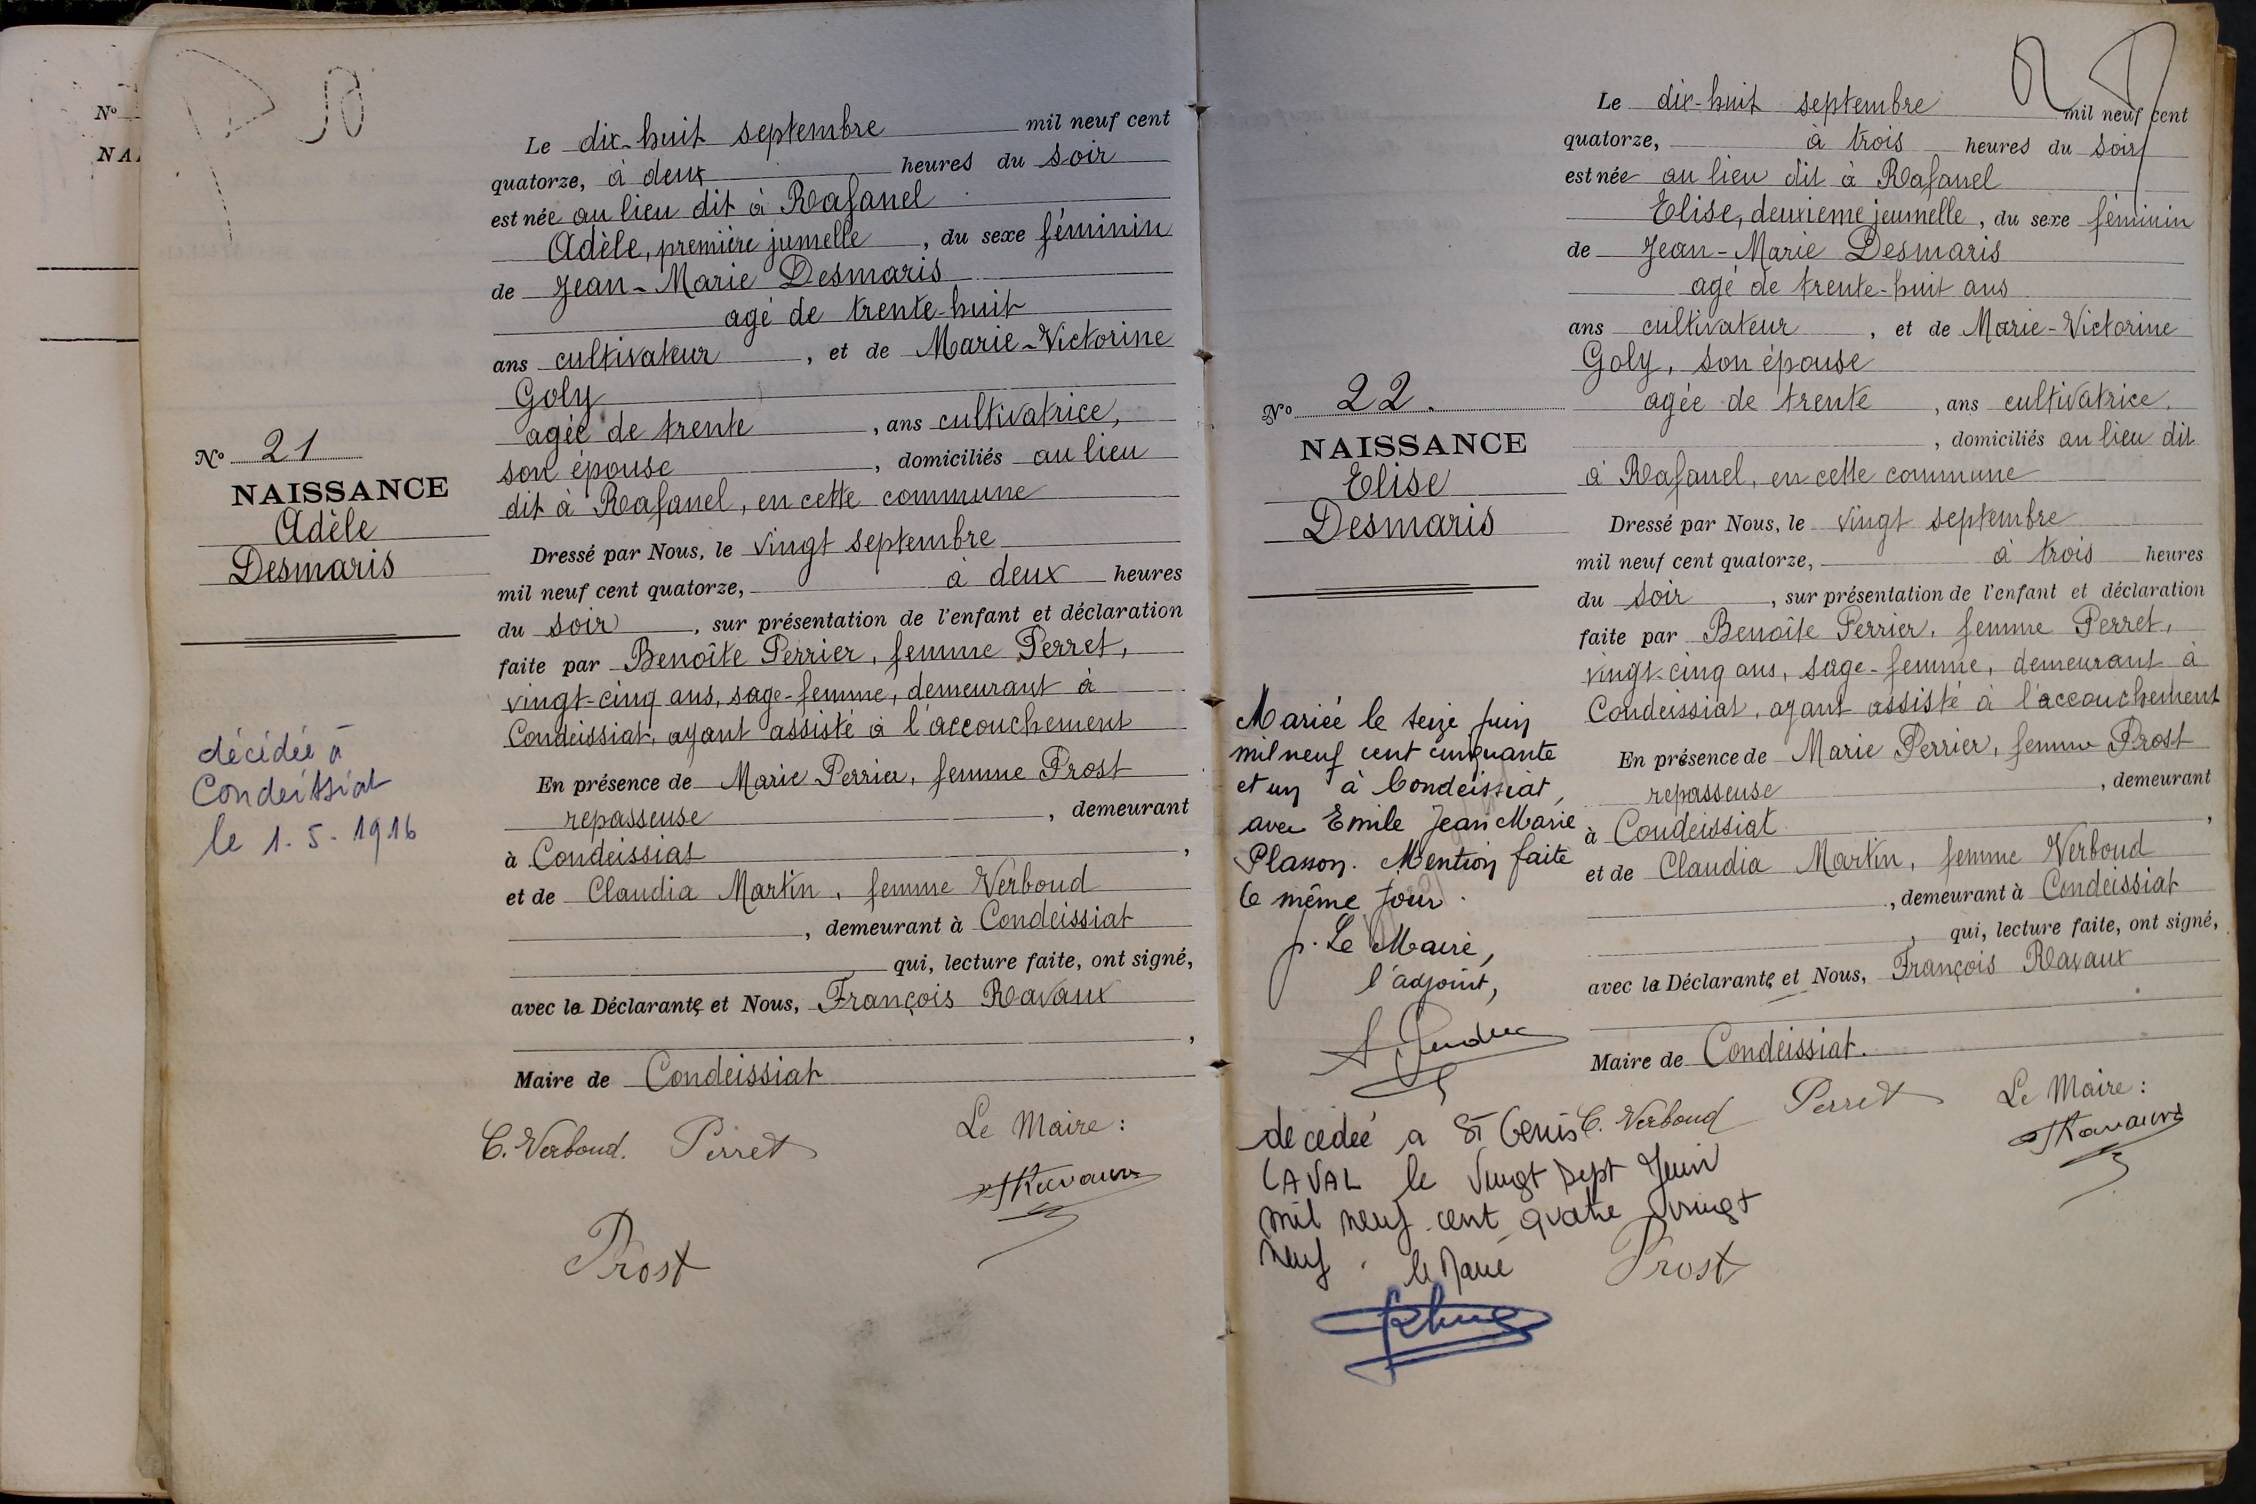 Nº
NA
Le dix-huit septembre mil neuf cent
quatorze, à deux heures du soir
est née au lieu dit à Rafanel
Adèle, première jumelle, du sexe féminin
de Jean-Marie Desmaris
agé de trente-huit
ans cultivateur, et de Marie-Victorine
Goly
agée de trente, ans cultivatrice,
son épouse, domiciliés au lieu
dit à Rafanel, en cette commune
Nº 21
NAISSANCE
Adèle
Desmaris
Dressé par Nous, le vingt septembre
mil neuf cent quatorze, à deux heures
du soir, sur présentation de l'enfant et déclaration
faite par Benoîte Perrier, femme Perret,
vingt-cinq ans, sage-femme, demeurant à
Condeissiat, ayant assisté à l'accouchement
décédée à
Condeissiat
le 1.5.1916
En présence de Marie Perrier, femme Prost
repasseuse, demeurant
à Condeissiat,
et de Claudia Martin, femme Verboud
, demeurant à Condeissiat
qui, lecture faite, ont signé,
avec la Déclarante et Nous, François Ravaux
,
Maire de Condeissiat
C. Verboud. Perret Le Maire :
Prost
Le dix-huit septembre mil neuf cent
quatorze, à trois heures du soir
est née au lieu dit à Rafanel
Elise, deuxième jeumelle, du sexe féminin
de Jean-Marie Desmaris
agé de trente-huit ans
ans cultivateur, et de Marie-Victorine
Goly, son épouse
agée de trente, ans cultivatrice.
, domiciliés au lieu dit
à Rafanel, en cette commune
Nº 22.
NAISSANCE
Elise
Desmaris
Dressé par Nous, le vingt septembre
mil neuf cent quatorze, à trois heures
du soir, sur présentation de l'enfant et déclaration
faite par Benoîte Perrier, femme Perret,
vingt-cinq ans, sage-femme, demeurant à
Condeissiat, ayant assisté à l'accouchement
En présence de Marie Perrier, femme Prost
repasseuse, demeurant
à Condeissiat,
et de Claudia Martin, femme Verboud
, demeurant à Condeissiat
, qui, lecture faite, ont signé,
avec la Déclarante et Nous, François Ravaux
Maire de Condeissiat.
C. Verboud Perret Le Maire :
Prost
Mariée le seize juin
mil neuf cent cinquante
et un à Condeissiat,
avec Emile Jean Marie
Plasson. Mention faite
le même jour.
p. Le Maire,
l'adjoint,
decedeé a St Genis
LAVAL le Vingt sept Juin
mil neuf cent quatre vingt
neuf. le Maire